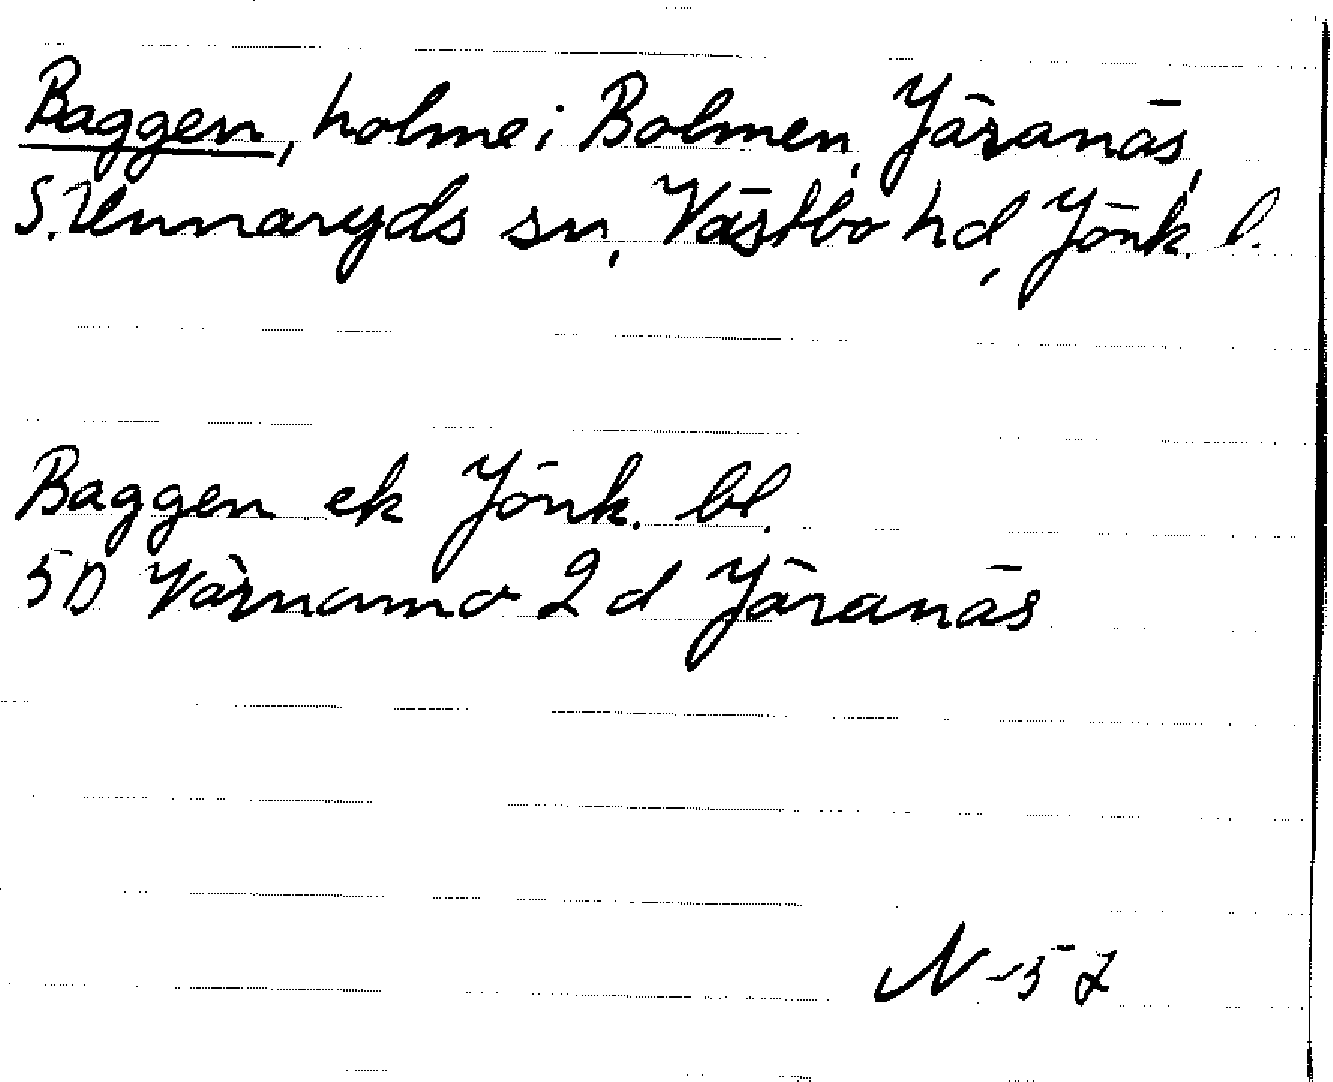 Baggen, holme i Bolmen, Järanäs,
S. Unnaryds sn, Västbo hd, Jönk. l.
Baggen ek Jönk. bl.
5D Värnamo 2 d Järanäs
N-57